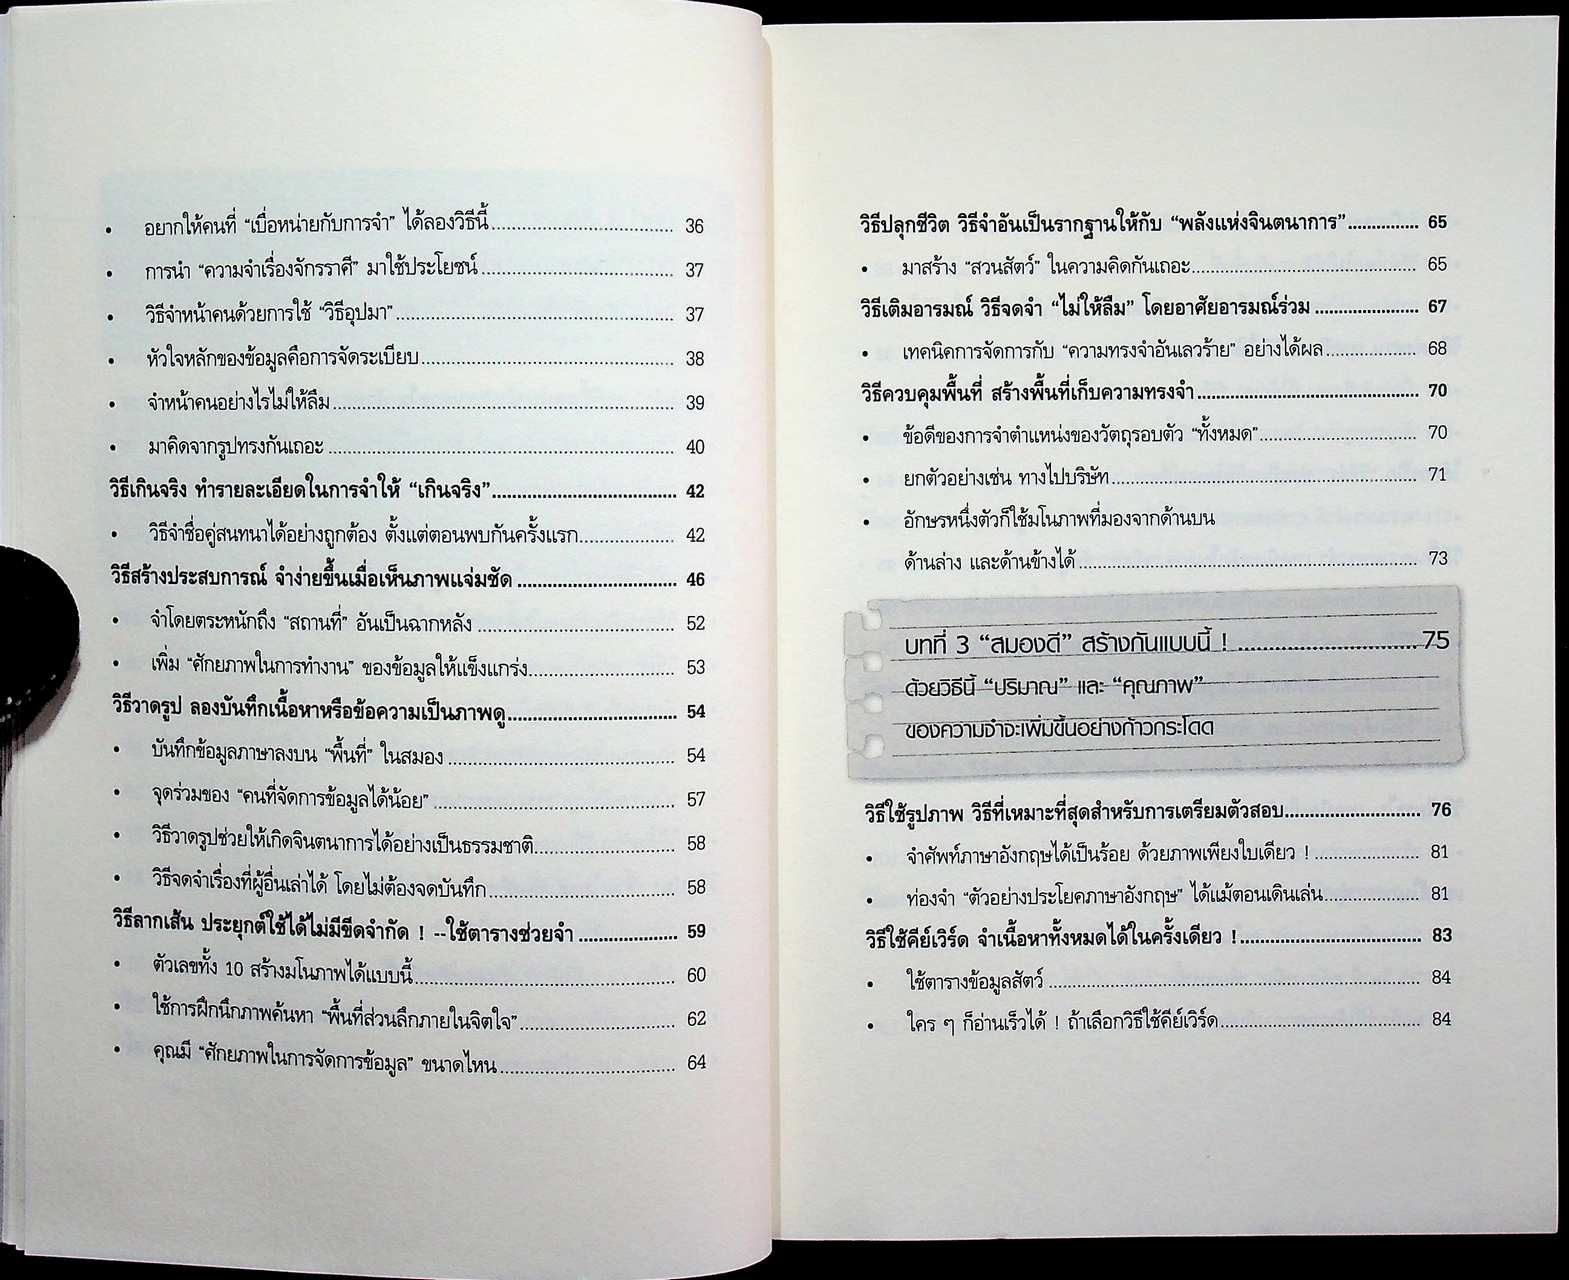 • อยากให้คนที่ “เบื่อหน่ายกับการจำ” ได้ลองวิธีนี้ 36
• การนำ “ความจำเรื่องจักรราศี” มาใช้ประโยชน์ 37
• วิธีจำหน้าคนด้วยการใช้ “วิธีอุปมา” 37
• หัวใจหลักของข้อมูลคือการจัดระเบียบ 38
• จำหน้าคนอย่างไรไม่ให้ลืม 39
• มาคิดจากรูปทรงกันเถอะ 40
วิธีเกินจริง ทำรายละเอียดในการจำให้ “เกินจริง” 42
• วิธีจำชื่อคู่สนทนาได้อย่างถูกต้อง ตั้งแต่ตอนพบกันครั้งแรก 42
วิธีสร้างประสบการณ์ จำง่ายขึ้นเมื่อเห็นภาพแจ่มชัด 46
• จำโดยตระหนักถึง “สถานที่” อันเป็นฉากหลัง 52
• เพิ่ม “ศักยภาพในการทำงาน” ของข้อมูลให้แข็งแกร่ง 53
วิธีวาดรูป ลองบันทึกเนื้อหาหรือข้อความเป็นภาพดู 54
• บันทึกข้อมูลภาษาลงบน “พื้นที่” ในสมอง 54
• จุดร่วมของ “คนที่จัดการข้อมูลได้น้อย” 57
• วิธีวาดรูปช่วยให้เกิดจินตนาการได้อย่างเป็นธรรมชาติ 58
• วิธีจดจำเรื่องที่ผู้อื่นเล่าได้ โดยไม่ต้องจดบันทึก 58
วิธีลากเส้น ประยุกต์ใช้ได้ไม่มีขีดจำกัด ! --ใช้ตารางช่วยจำ 59
• ตัวเลขทั้ง 10 สร้างมโนภาพได้แบบนี้ 60
• ใช้การฝึกนึกภาพค้นหา “พื้นที่ส่วนลึกภายในจิตใจ” 62
• คุณมี “ศักยภาพในการจัดการข้อมูล” ขนาดไหน 64
วิธีปลุกชีวิต วิธีจำอันเป็นรากฐานให้กับ “พลังแห่งจินตนาการ” 65
• มาสร้าง “สวนสัตว์” ในความคิดกันเถอะ 65
วิธีเติมอารมณ์ วิธีจดจำ “ไม่ให้ลืม” โดยอาศัยอารมณ์ร่วม 67
• เทคนิคการจัดการกับ “ความทรงจำอันเลวร้าย” อย่างได้ผล 68
วิธีควบคุมพื้นที่ สร้างพื้นที่เก็บความทรงจำ 70
• ข้อดีของการจำตำแหน่งของวัตถุรอบตัว “ทั้งหมด” 70
• ยกตัวอย่างเช่น ทางไปบริษัท 71
• อักษรหนึ่งตัวก็ใช้มโนภาพที่มองจากด้านบน
ด้านล่าง และด้านข้างได้ 73
บทที่ 3 “สมองดี” สร้างกันแบบนี้ ! 75
ด้วยวิธีนี้ “ปริมาณ” และ “คุณภาพ”
ของความจำจะเพิ่มขึ้นอย่างก้าวกระโดด
วิธีใช้รูปภาพ วิธีที่เหมาะที่สุดสำหรับการเตรียมตัวสอบ 76
• จำศัพท์ภาษาอังกฤษได้เป็นร้อย ด้วยภาพเพียงใบเดียว ! 81
• ท่องจำ “ตัวอย่างประโยคภาษาอังกฤษ” ได้แม้ตอนเดินเล่น 81
วิธีใช้คีย์เวิร์ด จำเนื้อหาทั้งหมดได้ในครั้งเดียว ! 83
• ใช้ตารางข้อมูลสัตว์ 84
• ใคร ๆ ก็อ่านเร็วได้ ! ถ้าเลือกวิธีใช้คีย์เวิร์ด 84